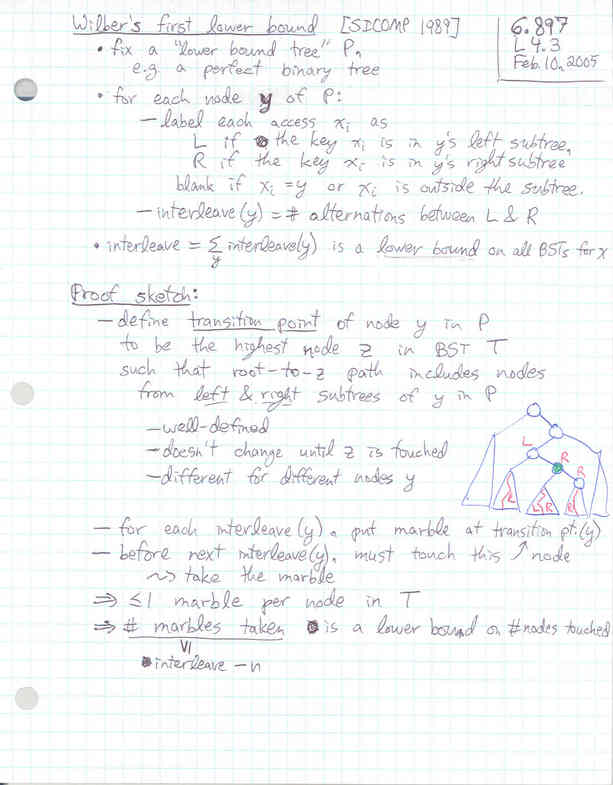 Wilber's first lower bound [SICOMP 1989]
6.897
L 4.3
Feb. 10, 2005
• fix a "lower bound tree" P,
e.g. a perfect binary tree
• for each node y of P:
— label each access xi as
L if the key xi is in y's left subtree,
R if the key xi is in y's right subtree
blank if xi = y or xi is outside the subtree.
— interleave(y) = # alternations between L & R
• interleave = Σ interleave(y) is a lower bound on all BSTs for x
y
Proof sketch:
— define transition point of node y in P
to be the highest node z in BST T
such that root-to-z path includes nodes
from left & right subtrees of y in P
— well-defined
— doesn't change until z is touched
— different for different nodes y
L
R
R
L
L R
R
— for each interleave(y), put marble at transition pt.(y)
— before next interleave(y), must touch this node
⤳ take the marble
⇒ ≤1 marble per node in T
⇒ # marbles taken is a lower bound on # nodes touched
VI
interleave - n